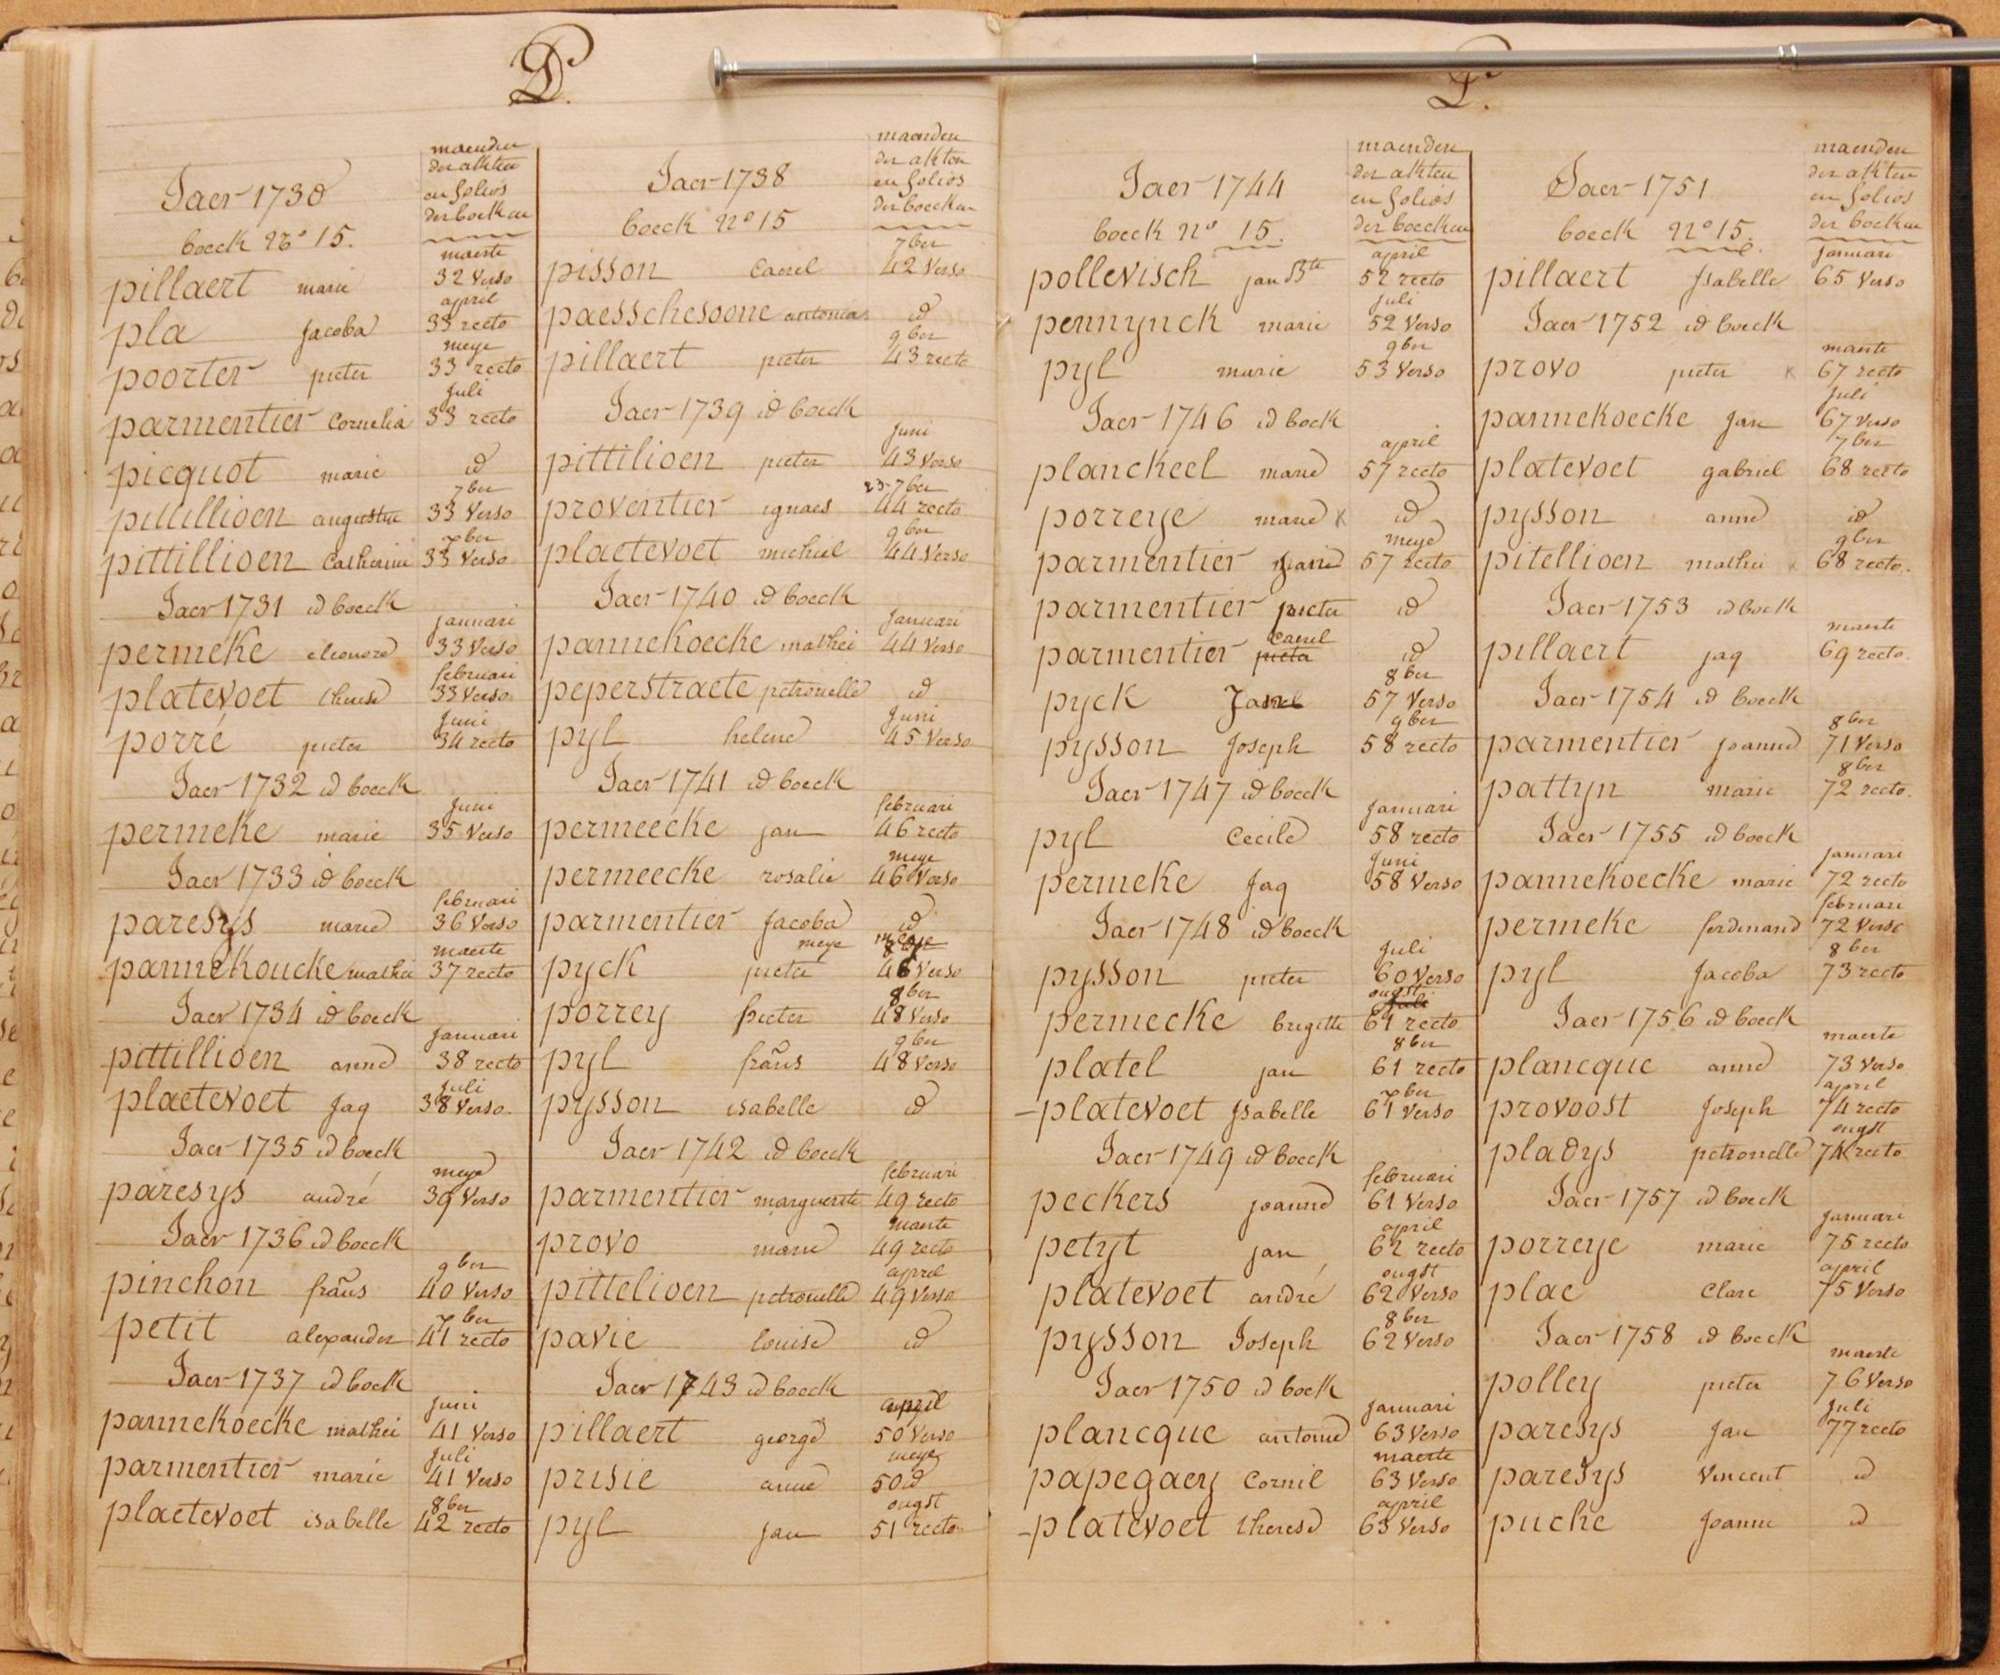 P.
Jaer 1730
maenden
der akten
en folios
der boeken
boeck No 15.
maerte
pillaert marie 32 Verso
april
pla Jacoba 33 recto
meye
poorter pieter 33 recto
Juli
parmentier Cornelia 33 recto
picquot marie id
7ber
pittillioen augustin 33 Verso
xber
pittillioen Catherine 33 Verso
Jaer 1731 id boeck
januari
permeke eleonore 33 Verso
februari
platevoet therese 33 Verso
Juni
porré pieter 34 recto
Jaer 1732 id boeck
Juni
permeke marie 35 Verso
Jaer 1733 id boeck
februari
paresys marie 36 Verso
maerte
pannekoucke mathei 37 recto
Jaer 1734 id boeck
januari
pittillioen anne 38 recto
Juli
plaetevoet Jaq 38 Verso
Jaer 1735 id boeck
meye
paresys andré 39 Verso
Jaer 1736 id boeck
9ber
pinchon frans 40 Verso
xber
petit alexander 41 recto
Jaer 1737 id boeck
Juni
pannekoecke mathei 41 Verso
Juli
parmentier marie 41 Verso
8ber
plaetevoet isabelle 42 recto
Jaer 1738
maenden
der akten
en folios
der boecken
boeck No 15
7ber
pisson Carel 42 Verso
paesschesoone antonia id
9ber
pillaert pieter 43 recto
Jaer 1739 id boeck
Juni
pittilioen pieter 43 Verso
23-7ber
proventier ignaes 44 recto
9ber
plaetevoet michiel 44 Verso
Jaer 1740 id boeck
Januari
pannekoecke mathei 44 Verso
peperstraete petronelle id
Juni
pyl helene 45 Verso
Jaer 1741 id boeck
februari
permeecke jan 46 recto
meye
permeecke rosalie 46 Verso
parmentier Jacoba id
meye
pyck pieter 46 Verso
8ber
porrey pieter 48 Verso
9ber
pyl frans 48 Verso
pysson isabelle id
Jaer 1742 id boeck
februari
parmentier marguerite 49 recto
maerte
provo marie 49 recto
april
pittelioen petronelle 49 Verso
pavie louise id
Jaer 1743 id boeck
april
pillaert george 50 Verso
meye
prisie anne 50 id
ougst
pyl jan 51 recto
P.
Jaer 1744
maenden
der akten
en folios
der boecken
boeck No 15.
april
pollevisch jan Bte 52 recto
Juli
pennynck marie 52 Verso
9ber
pyl marie 53 Verso
Jaer 1746 id boek
april
planckeel marie 57 recto
porreye marie x id
meye
parmentier 57 recto
parmentier pieter id
Carel
parmentier pieter id
8ber
pyck 57 Verso
9ber
pysson Joseph 58 recto
Jaer 1747 id boeck
Januari
pyl Cecile 58 recto
Juni
permeke Jaq 58 Verso
Jaer 1748 id boeck
Juli
pysson pieter 60 Verso
ougst
Juli
permecke brigitte 61 recto
8ber
platel jan 61 recto
xber
– platevoet Isabelle 61 Verso
Jaer 1749 id boeck
februari
peckers joanne 61 Verso
april
petyt jan 62 recto
ougst
platevoet andré 62 Verso
8ber
pysson Joseph 62 Verso
Jaer 1750 id boek
Januari
plancque antoine 63 Verso
maerte
papegaey Cornil 63 Verso
april
– platevoet therese 63 Verso
Jaer 1751
maenden
der akten
en folios
der boeken
boeck No 15.
Januari
pillaert Isabelle 65 Verso
Jaer 1752 id boeck
maerte
provo pieter x 67 recto
Juli
pannekoecke Jan 67 Verso
7ber
platevoet gabriel 68 recto
pysson anne id
9ber
pitellioen mathei x 68 recto.
Jaer 1753 id boek
maerte
pillaert jaq 69 recto.
Jaer 1754 id boeck
8ber
parmentier joanne 71 Verso
8ber
pattyn marie 72 recto.
Jaer 1755 id boeck
januari
pannekoecke marie 72 recto
februari
permeke ferdinand 72 Verso
8ber
pyl Jacoba 73 recto
Jaer 1756 id boeck
maerte
plancque anne 73 Verso
april
provoost Joseph 74 recto
ougst
pladys petronelle 74 recto
Jaer 1757 id boeck
Januari
porreye marie 75 recto
april
plae Clare 75 Verso
Jaer 1758 id boeck
maerte
polley pieter 76 Verso
Juli
paresys Jan 77 recto
paresys Vincent id
puche Joanne id